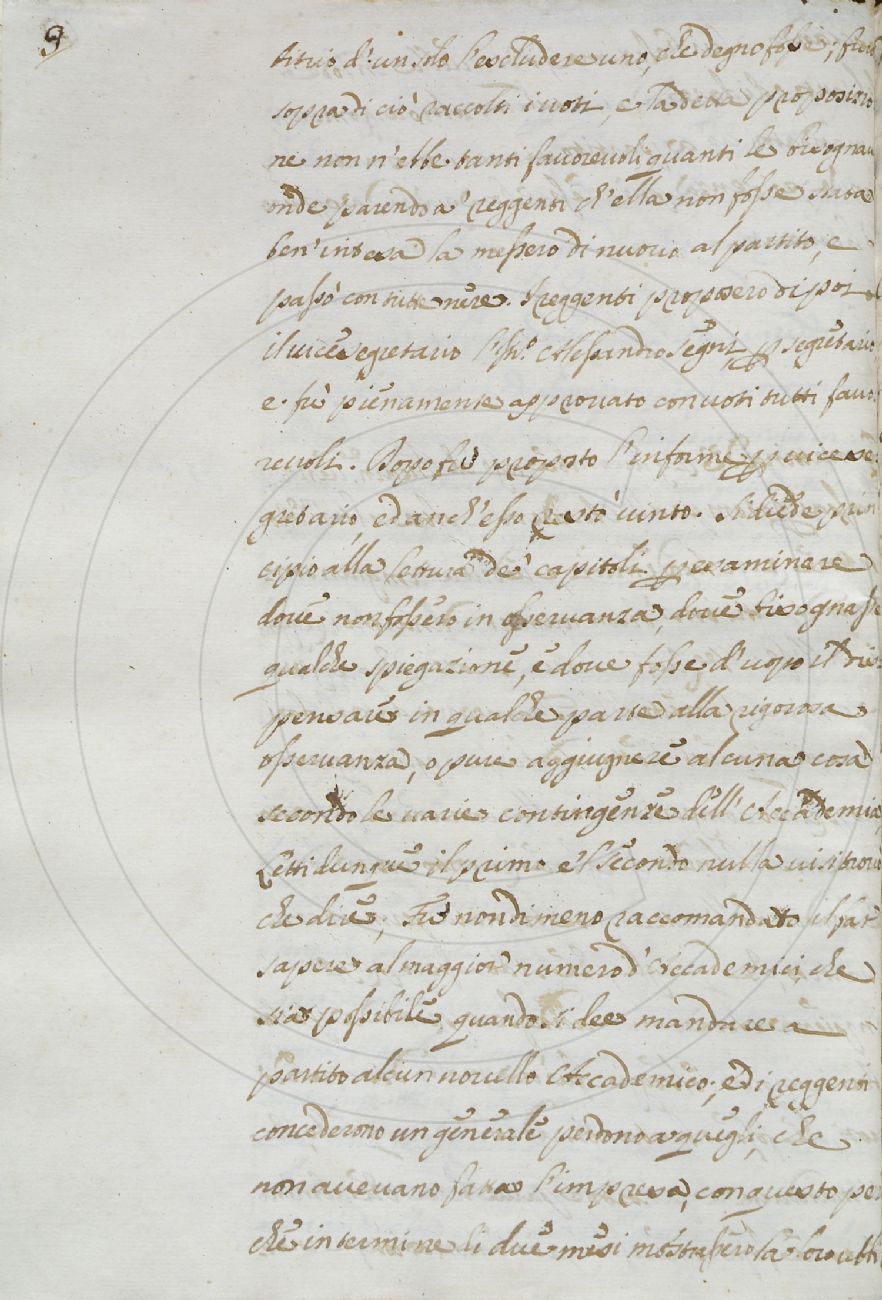 9
titrio d'un solo l'escludere uno, che degno fosse; furo
sopra di ciò raccolti i voti, e la detta proposizio
ne non n'ebbe tanti favorevoli quanti le bisognau
onde parendo a' reggenti ch'ella non fosse stata
ben' intesa la messero di nuovo al partito, e
passò con tutte nere. I reggenti proposero di poi
il vicesegretario l'Ill.o Alessandro Segni p segretario
e fù pienamente approuato con voti tutti fauo
reuoli. Dopo fù proposto l'informe p vicese
gretario, ed anch'esso restò vinto. Si diede prin
cipio alla lettura de' capitoli p esaminare
doue non fossero in osseruanza, doue bisognasse
qualche spiegazione, e doue fosse d'uopo il dis
pensare in qualche parte alla rigorosa
osseruanza, o pure aggiugnere alcuna cosa
secondo le uarie contingenze dell' Accademia
Letti dunque il primo e 'l secondo nulla ui si trouò
che dire; Fù nondimeno raccomandato il far
sapere al maggior numero d'Accademici, che
sia possibile, quando si dee mandare a
partito alcun nouello Accademico; ed i reggenti
concederono un generale perdono a quegli, che
non aueuano fatta l'impresa, con questo per
che in termine di due mesi mostrassero la loro